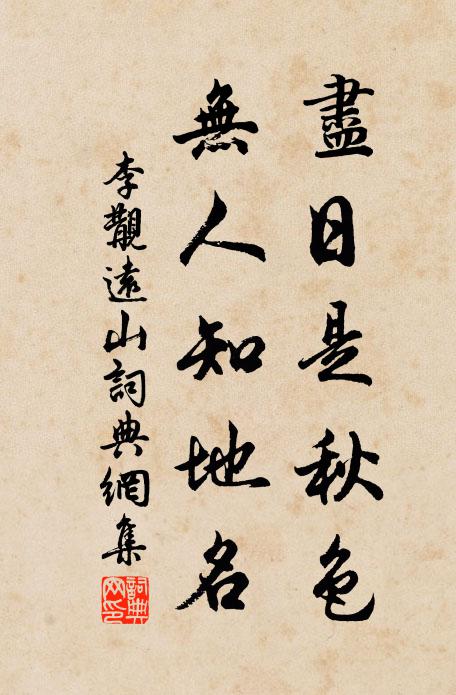 盡日是秋色
無人知地名
李觀遠山詞典網集
詞典網印